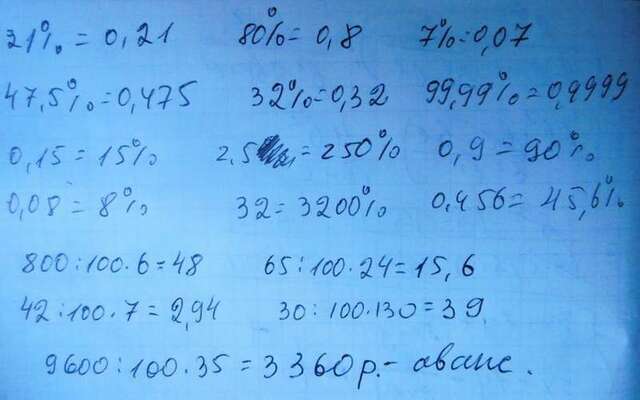 21% = 0,21 80% = 0,8 7% = 0,07
47,5% = 0,475 32% = 0,32 99,99% = 0,9999
0,15 = 15% 2,5 = 250% 0,9 = 90%
0,08 = 8% 32 = 3200% 0,456 = 45,6%
800 : 100 · 6 = 48 65 : 100 · 24 = 15,6
42 : 100 · 7 = 2,94 30 : 100 · 130 = 39
9600 : 100 · 35 = 3360 р. – аванс.